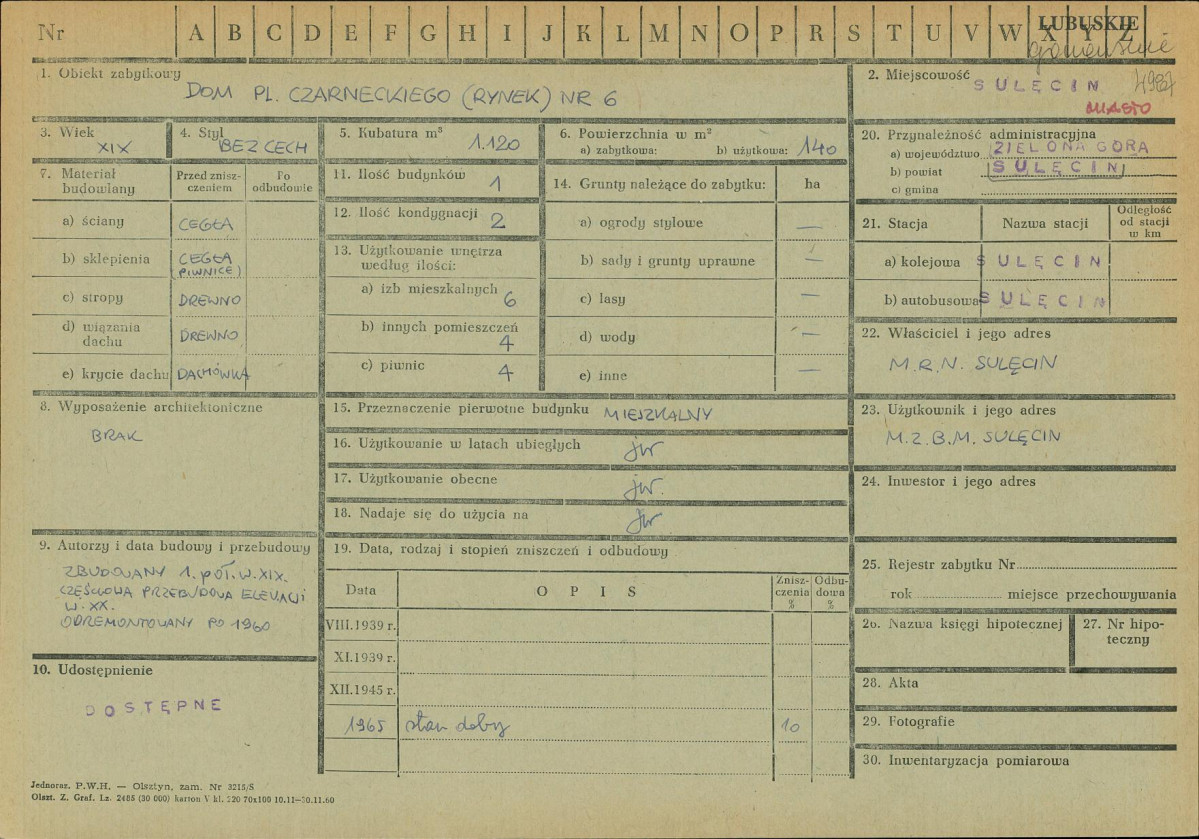 Nr A B C D E F G H I J K L M N O P R S T U V W X Y Z LUBUSKIE
1. Obiekt zabytkowy
DOM PL. CZARNECKIEGO (RYNEK) NR 6
2. Miejscowość
SULĘCIN 4987
MIASTO
3. Wiek
XIX
4. Styl
BEZ CECH
5. Kubatura m³
1.120
6. Powierzchnia w m²
a) zabytkowa: b) użytkowa: 140
7. Materiał budowlany
Przed zniszczeniem
Po odbudowie
a) ściany CEGŁA
b) sklepienia CEGŁA (PIWNICE)
c) stropy DREWNO
d) wiązania dachu DREWNO
e) krycie dachu DACHÓWKA
8. Wyposażenie architektoniczne
BRAK
9. Autorzy i data budowy i przebudowy
ZBUDOWANY 1. POŁ. W. XIX.
CZĘŚCIOWA PRZEBUDOWA ELEWACJI
W. XX.
ODREMONTOWANY PO 1960
10. Udostępnienie
DOSTĘPNE
11. Ilość budynków 1
12. Ilość kondygnacji 2
13. Użytkowanie wnętrza
według ilości:
a) izb mieszkalnych 6
b) innych pomieszczeń 4
c) piwnic 4
14. Grunty należące do zabytku: ha
a) ogrody stylowe —
b) sady i grunty uprawne —
c) lasy —
d) wody —
e) inne —
15. Przeznaczenie pierwotne budynku MIESZKALNY
16. Użytkowanie w latach ubiegłych jw
17. Użytkowanie obecne jw.
18. Nadaje się do użycia na jw
19. Data, rodzaj i stopień zniszczeń i odbudowy
Data OPIS Zniszczenia % Odbudowa %
VIII.1939 r.
XI.1939 r.
XII.1945 r.
1965 stan dobry 10
20. Przynależność administracyjna
a) województwo ZIELONA GÓRA
b) powiat SULĘCIN
c) gmina
21. Stacja Nazwa stacji Odległość od stacji w km
a) kolejowa SULĘCIN
b) autobusowa SULĘCIN
22. Właściciel i jego adres
M.R.N. SULĘCIN
23. Użytkownik i jego adres
M.Z.B.M. SULĘCIN
24. Inwestor i jego adres
25. Rejestr zabytku Nr
rok miejsce przechowywania
26. Nazwa księgi hipotecznej
27. Nr hipoteczny
28. Akta
29. Fotografie
30. Inwentaryzacja pomiarowa
Jednoraz. P.W.H. — Olsztyn, zam. Nr 3215/S
Olszt. Z. Graf. Lz. 2485 (30 000) karton V kl. 220 70x100 10.11—30.11.60